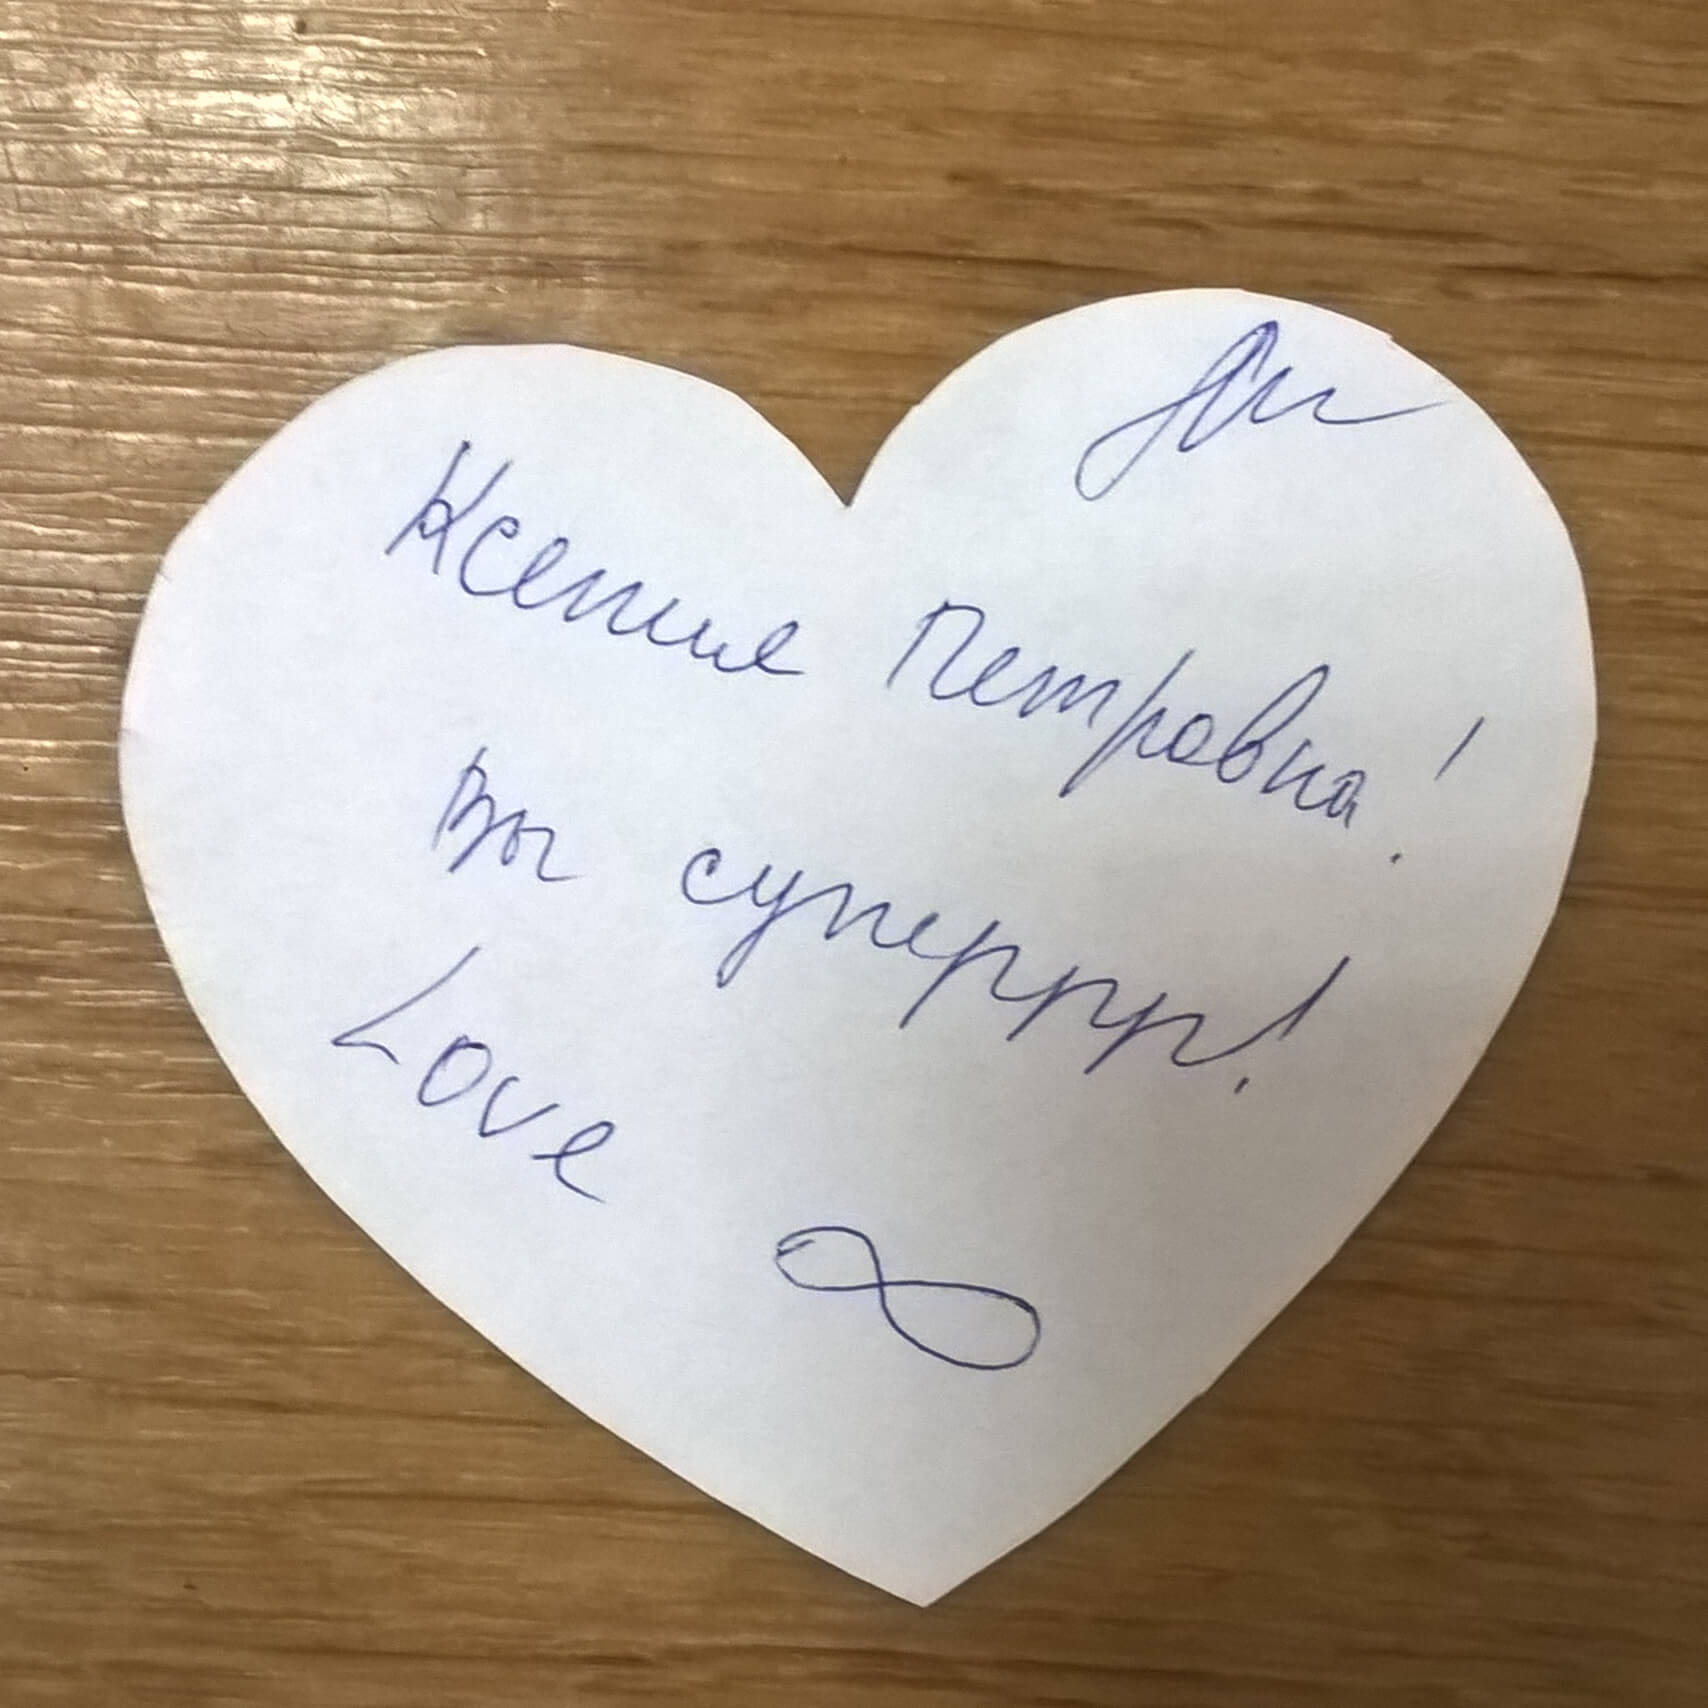 Ксения Петровна!
Вы суперрр!
Love ∞